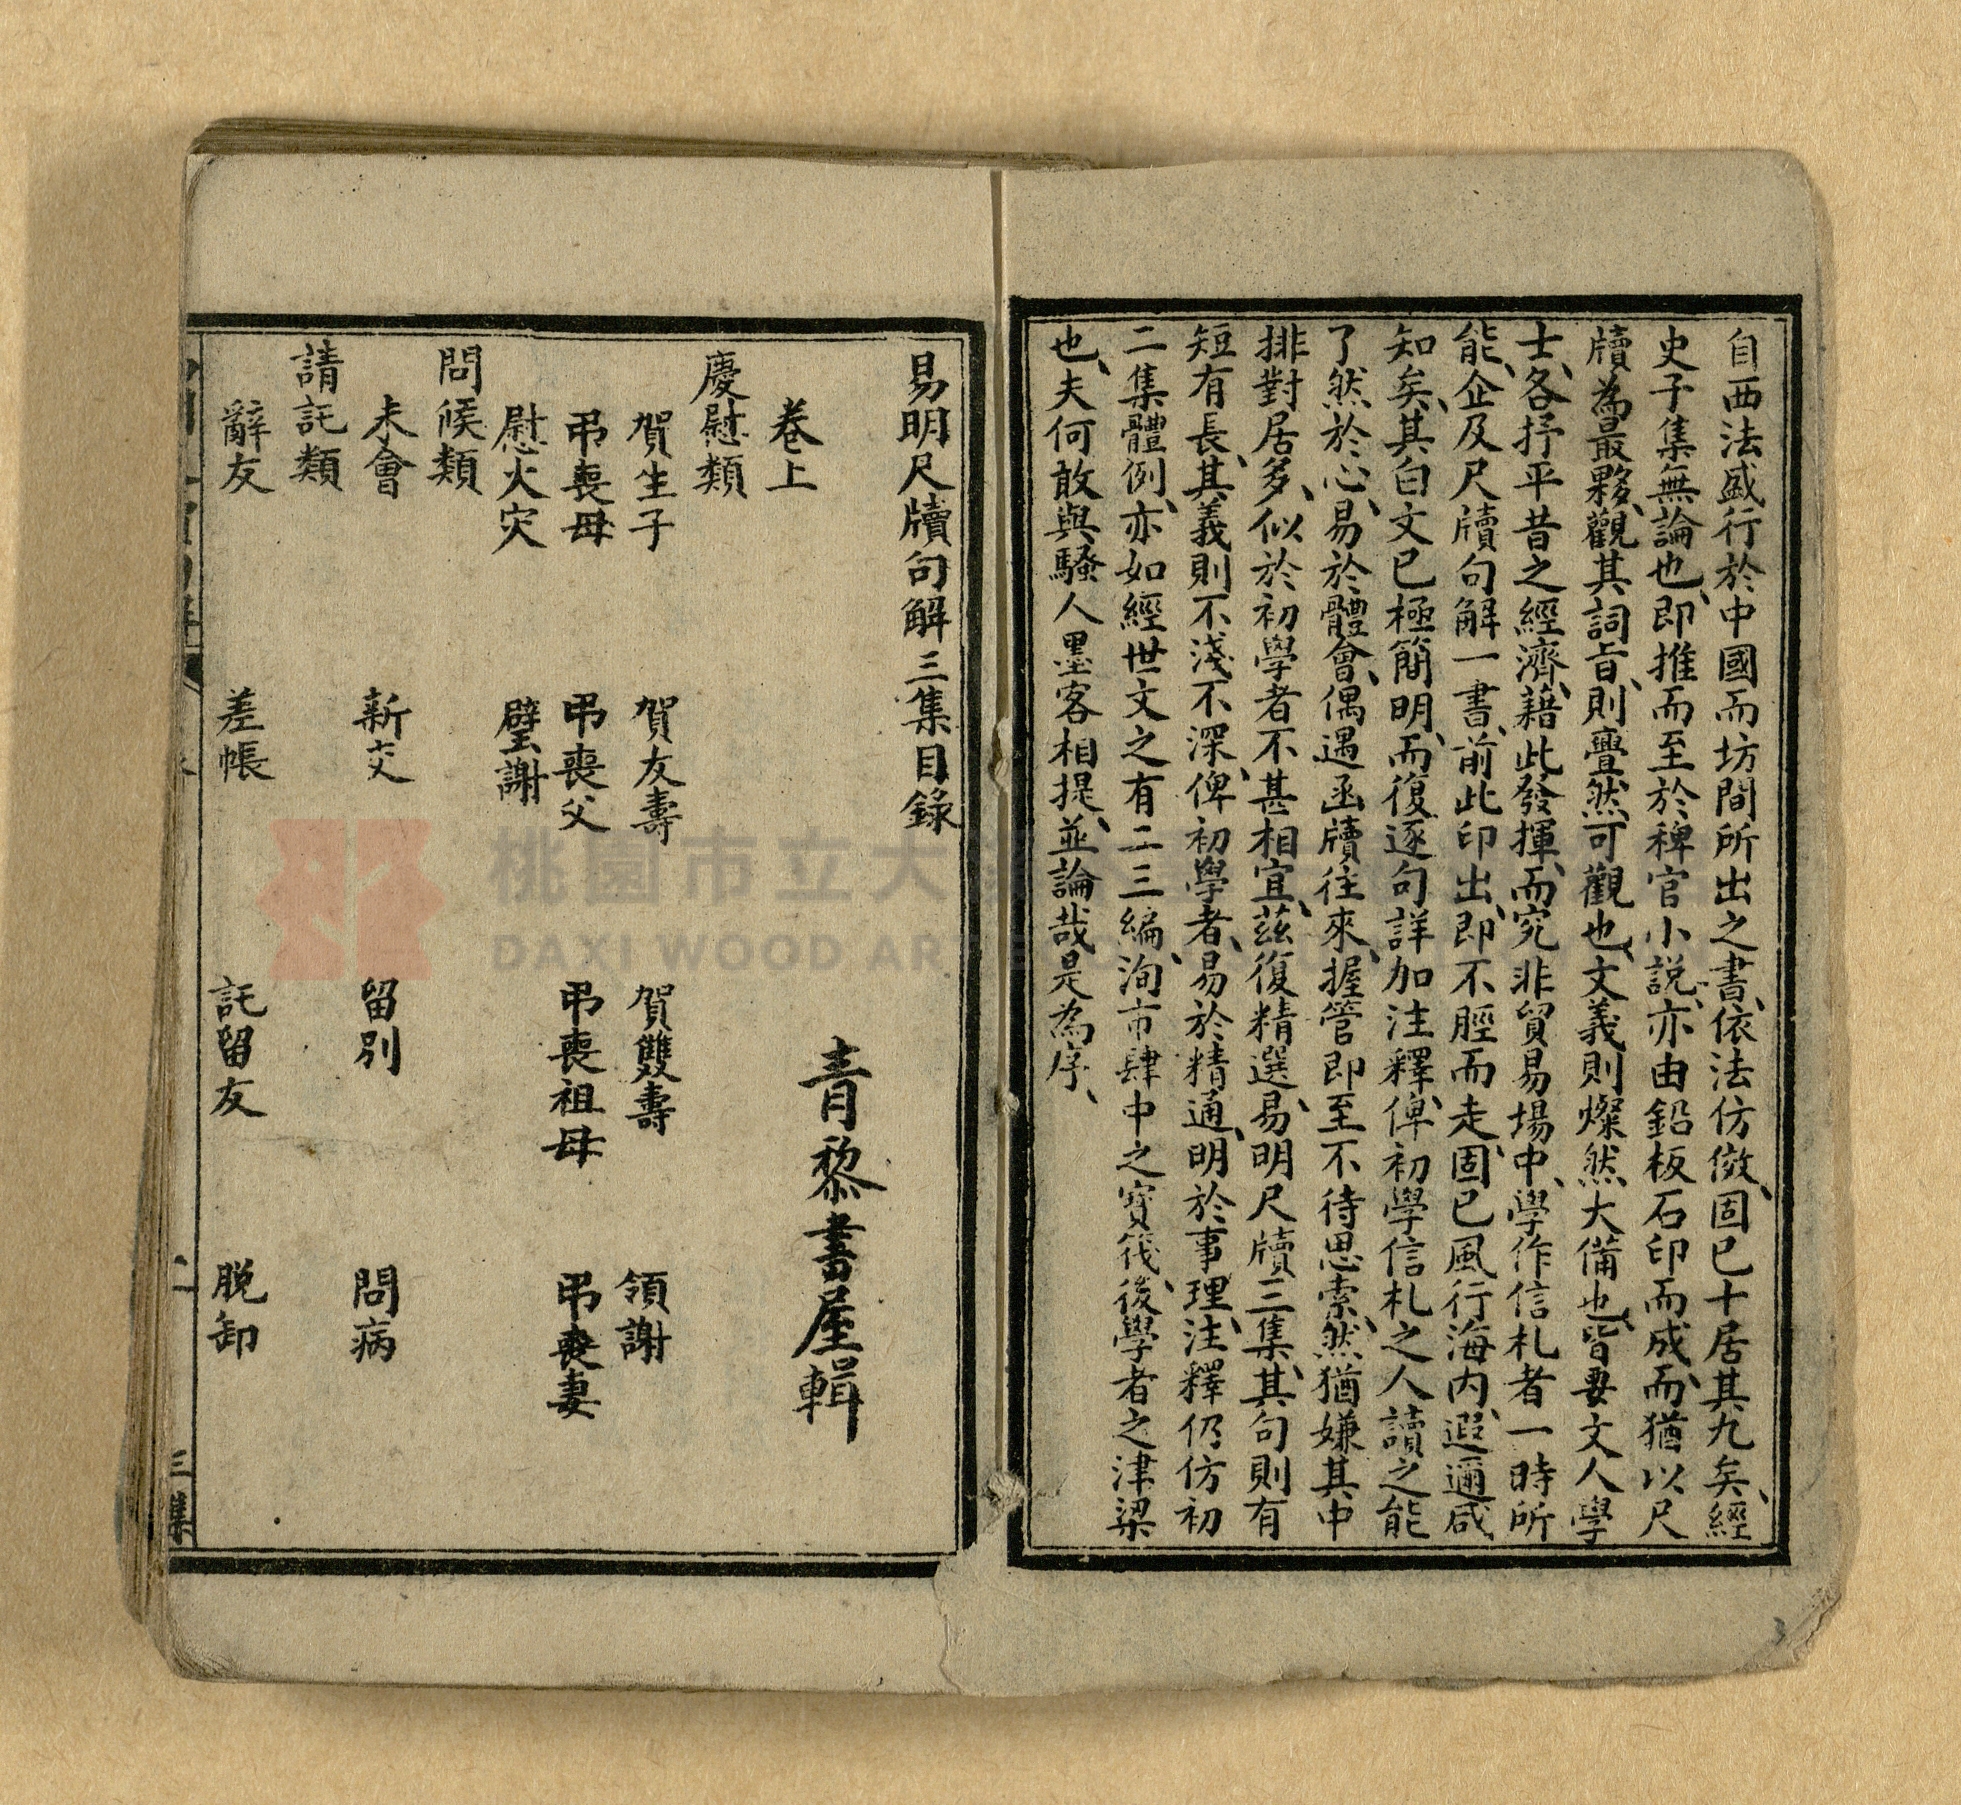 自西法盛行於中國而坊間所出之書、依法仿做、固已十居其九矣、經
史子集無論也、即推而至於稗官小說、亦由鉛板石印而成、而猶以尺
牘為最夥、觀其詞旨、則亹然可觀也、文義則燦然大備也、皆要文人學
士、各抒平昔之經濟、藉此發揮、而究非貿易場中、學作信札者一時所
能企及、尺牘句解一書、前此印出、即不脛而走、固已風行海內、遐邇咸
知矣、其白文已極簡明、而復逐句詳加注釋、俾初學信札之人讀之能
了然於心、易於體會、偶遇函牘往來、握管即至不待思索、然猶嫌其中
排對居多、似於初學者不甚相宜、茲復精選易明尺牘三集、其句則有
短有長、其義則不淺不深、俾初學者、易於精通、明於事理、注釋仍仿初
二集體例、亦如經世文之有二三編、洵市肆中之寶筏、後學者之津梁
也、夫何敢與騷人墨客相提並論哉是為序、
易明尺牘句解三集目錄
青黎書屋輯
卷上
慶慰類
賀生子 賀友壽 賀雙壽 領謝
弔喪母 弔喪父 弔喪祖母 弔喪妻
慰火災 璧謝
問候類
未會 新交 留別 問病
請託類
辭友 差帳 託留友 脫卸
二 三集
桃園市立大
DAXI WOOD AR
3